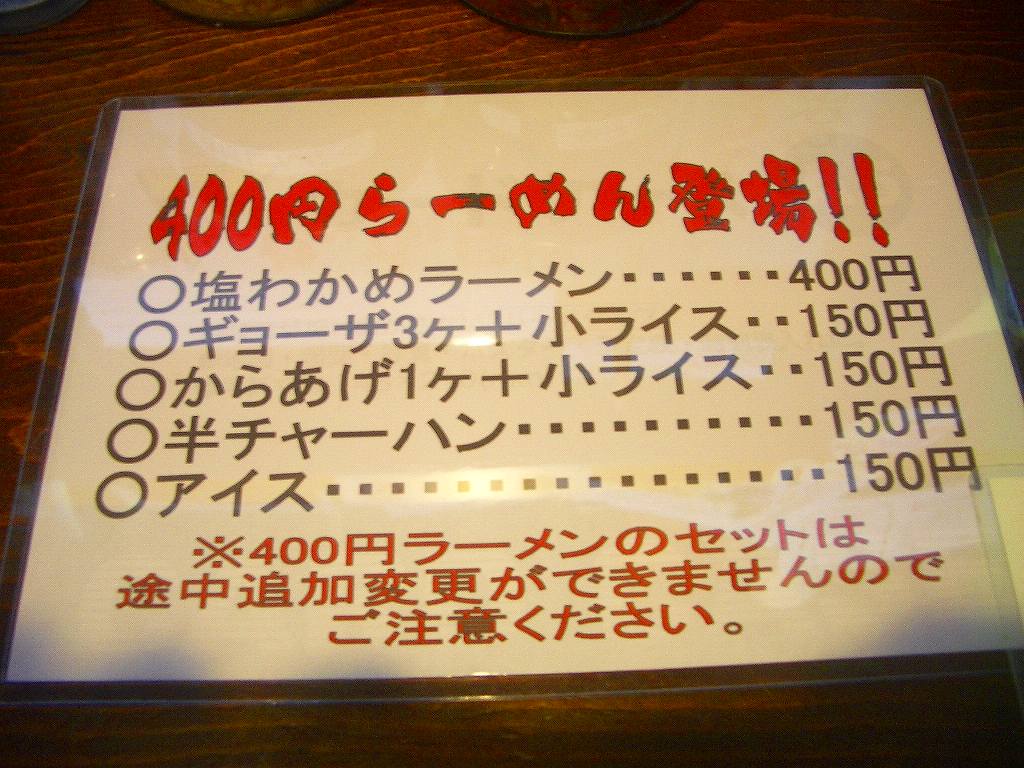 400円らーめん登場!!
○塩わかめラーメン・・・・・・400円
○ギョーザ3ヶ＋小ライス・・150円
○からあげ1ヶ＋小ライス・・150円
○半チャーハン・・・・・・・・・・150円
○アイス・・・・・・・・・・・・・・・・150円
※400円ラーメンのセットは
途中追加変更ができませんので
ご注意ください。